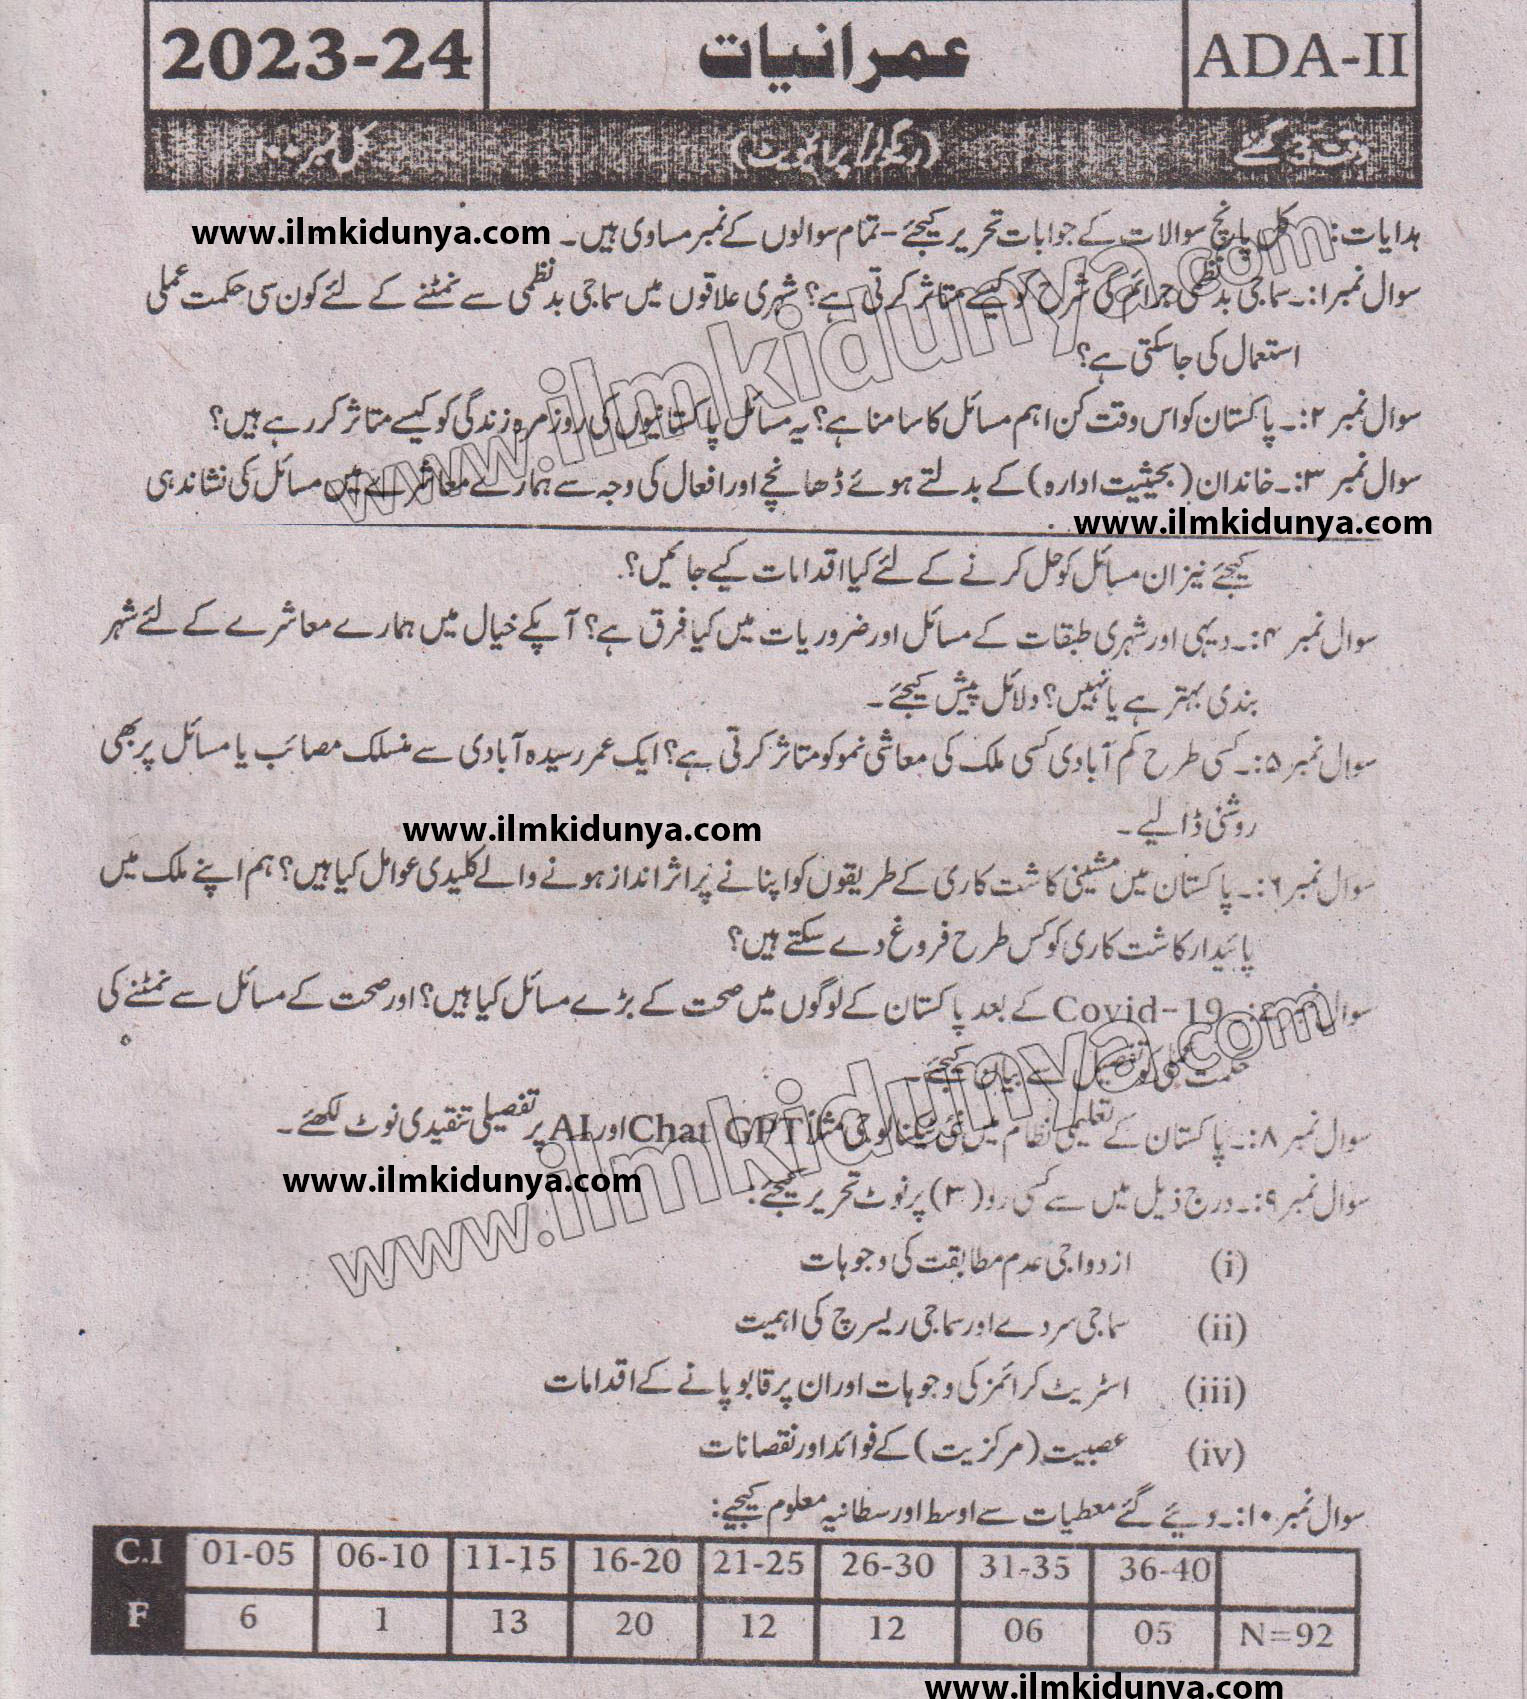 2023-24 عمرانیات ADA-II
وقت 3 گھنٹے (ریگولر/پرائیویٹ) کل نمبر ۱۰۰
ہدایات: کل پانچ سوالات کے جوابات تحریر کیجئے-تمام سوالوں کے نمبر مساوی ہیں۔ www.ilmkidunya.com
سوال نمبر۱:۔سماجی بدنظمی جرائم کی شرح کو کیسے متاثر کرتی ہے؟ شہری علاقوں میں سماجی بدنظمی سے نمٹنے کے لئے کون سی حکمت عملی
استعمال کی جاسکتی ہے؟
سوال نمبر ۲:۔پاکستان کو اس وقت کن اہم مسائل کا سامنا ہے؟ یہ مسائل پاکستانیوں کی روزمرہ زندگی کو کیسے متاثر کر رہے ہیں؟
سوال نمبر ۳:۔خاندان (بحیثیت ادارہ) کے بدلتے ہوئے ڈھانچے اور افعال کی وجہ سے ہمارے معاشرے میں مسائل کی نشاندہی
www.ilmkidunya.com
کیجئے نیز ان مسائل کو حل کرنے کے لئے کیا اقدامات کیے جائیں؟
سوال نمبر ۴:۔دیہی اور شہری طبقات کے مسائل اور ضروریات میں کیا فرق ہے؟ آپکے خیال میں ہمارے معاشرے کے لئے شہر
بندی بہتر ہے یا نہیں؟ دلائل پیش کیجئے۔
سوال نمبر ۵:۔کسی طرح کم آبادی کسی ملک کی معاشی نمو کو متاثر کرتی ہے؟ ایک عمر رسیدہ آبادی سے منسلک مصائب یا مسائل پر بھی
روشنی ڈالیے۔
www.ilmkidunya.com
سوال نمبر ۶:۔پاکستان میں مشینی کاشت کاری کے طریقوں کو اپنانے پر اثر انداز ہونے والے کلیدی عوامل کیا ہیں؟ ہم اپنے ملک میں
پائیدار کاشت کاری کو کس طرح فروغ دے سکتے ہیں؟
سوال نمبر ۷:۔Covid-19 کے بعد پاکستان کے لوگوں میں صحت کے بڑے مسائل کیا ہیں؟ اور صحت کے مسائل سے نمٹنے کی
حکمت عملی کو تفصیل سے بیان کیجئے۔
سوال نمبر ۸:۔پاکستان کے تعلیمی نظام میں نئی ٹیکنالوجی مثلاً Chat GPT اور AI پر تفصیلی تنقیدی نوٹ لکھئے۔
www.ilmkidunya.com
سوال نمبر ۹:۔درج ذیل میں سے کسی دو (۲) پر نوٹ تحریر کیجئے:
(i) ازدواجی عدم مطابقت کی وجوہات
(ii) سماجی سروے اور سماجی ریسرچ کی اہمیت
(iii) اسٹریٹ کرائمز کی وجوہات اور ان پر قابو پانے کے اقدامات
(iv) عصبیت (مرکزیت) کے فوائد اور نقصانات
سوال نمبر ۱۰:۔دیئے گئے معطیات سے اوسط اور سطانیہ معلوم کیجیے:
C.I 01-05 06-10 11-15 16-20 21-25 26-30 31-35 36-40
F 6 1 13 20 12 12 06 05 N=92
www.ilmkidunya.com
www.ilmkidunya.com
www.ilmkidunya.com